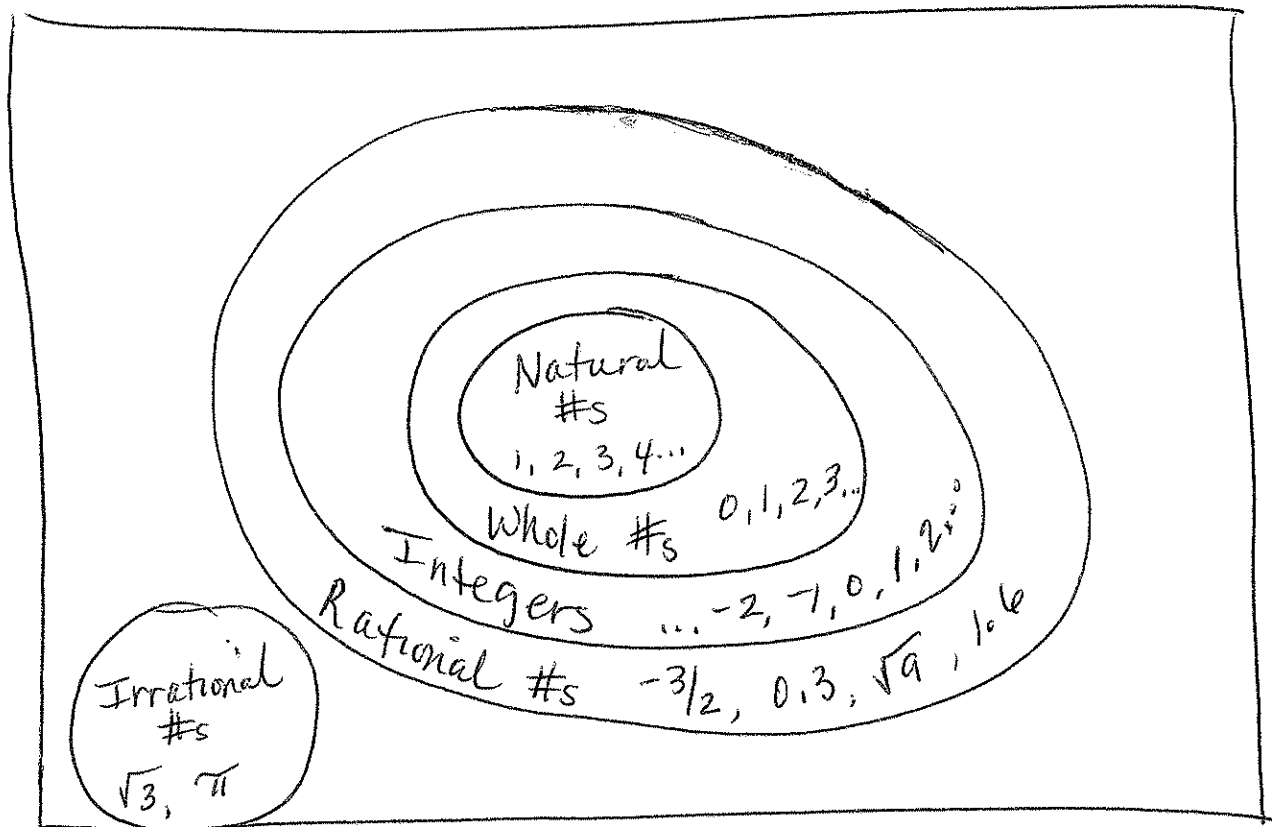 Natural
#s
1, 2, 3, 4...
Whole #s 0, 1, 2, 3...
Integers ... -2, -1, 0, 1, 2...
Rational #s -3/2, 0.3, √9, 1.6
Irrational
#s
√3, π